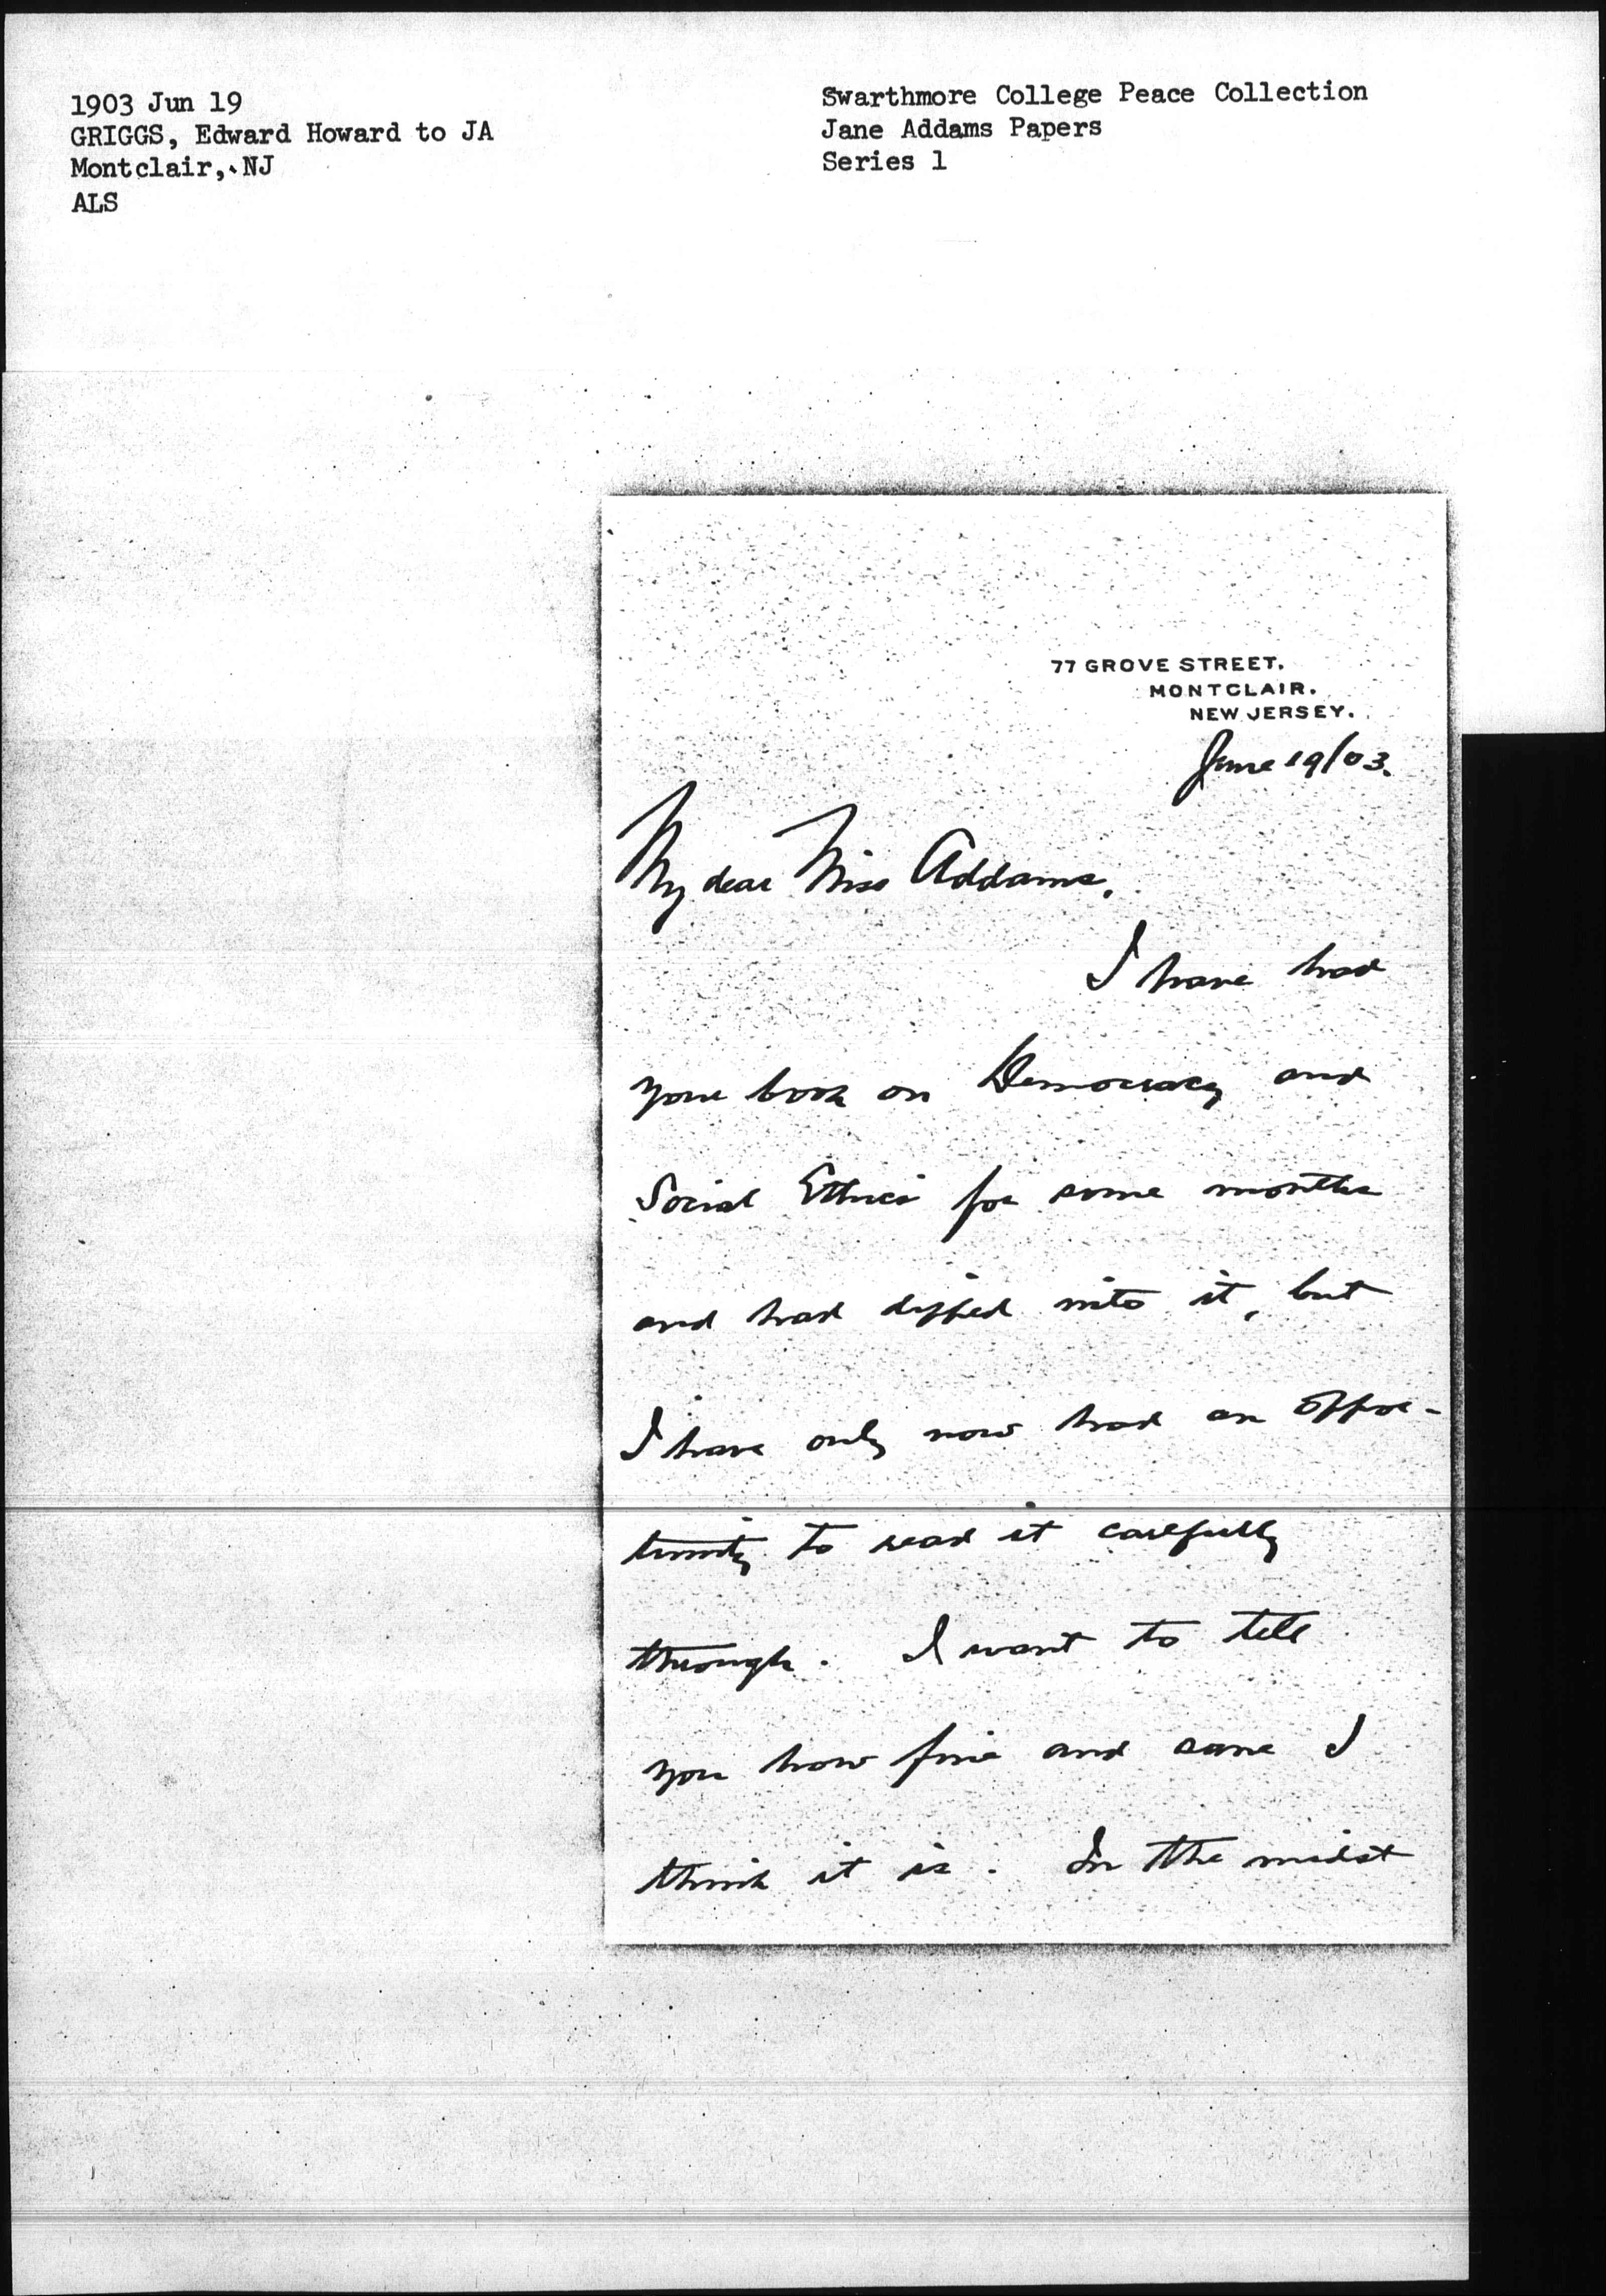 1903 Jun 19
GRIGGS, Edward Howard to JA
Montclair, NJ
ALS
Swarthmore College Peace Collection
Jane Addams Papers
Series 1
77 GROVE STREET.
MONTCLAIR.
NEW JERSEY.
June 19/03.
My dear Miss Addams,
I have had
your book on Democracy and
Social Ethics for some months
and had dipped into it, but
I have only now had an oppor-
tunity to read it carefully
through. I want to tell
you how fine and sane I
think it is. In the midst